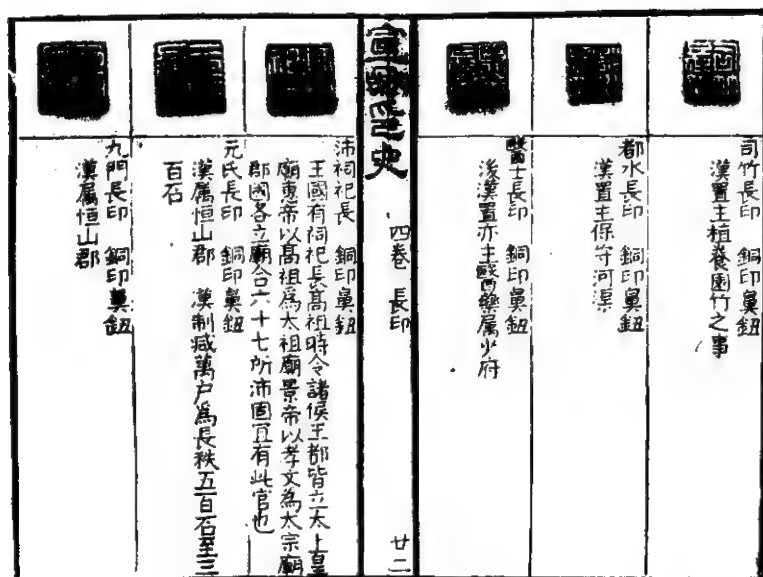 司竹長印 銅印鼻鈕
漢置主植養園竹之事
都水長印 銅印鼻鈕
漢置主保守河渠
醫士長印 銅印鼻鈕
後漢置亦主醫藥属少府
宣和印史 四卷 長印 廿二
沛祠祀長 銅印鼻鈕
王國有祠祀長高祖時令諸侯王都皆立太上皇
廟惠帝以髙祖爲太祖廟景帝以孝文為太宗廟
郡國各立廟合六十七所沛國宜有此官也
元氏長印 銅印鼻鈕
漢属恒山郡 漢制减萬户爲長秩五百石至三
百石
九門長印 銅印鼻鈕
漢属恒山郡